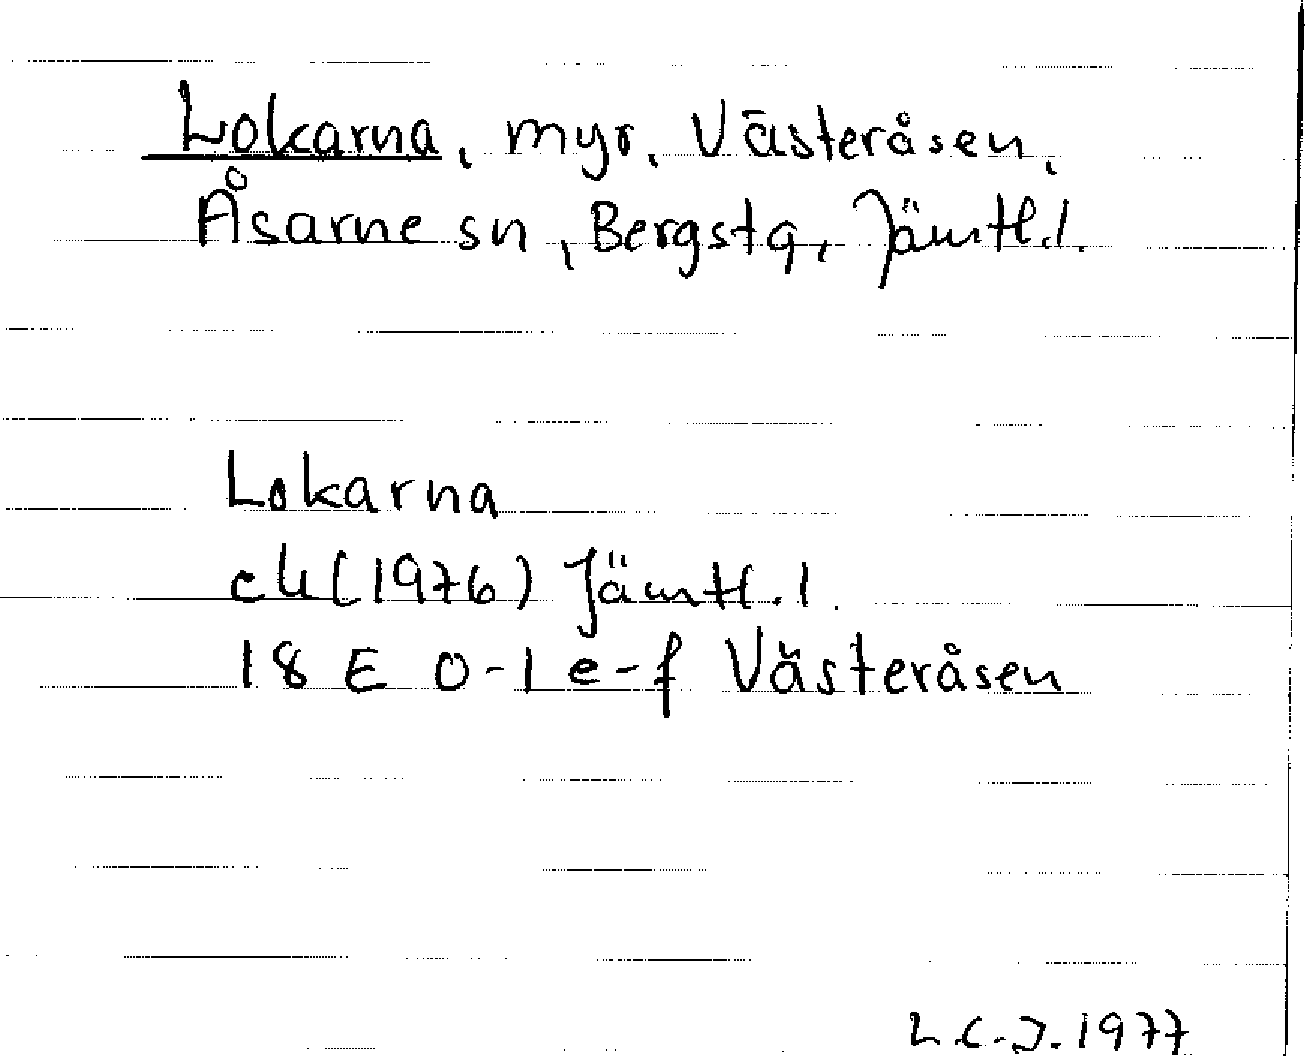 Lokarna, myr, Västeråsen,
Åsarne sn, Bergs tg, Jämtl. l.
Lokarna
ek (1976) Jämtl. l.
18 E 0-1 e-f Västeråsen
L.C.J. 1977